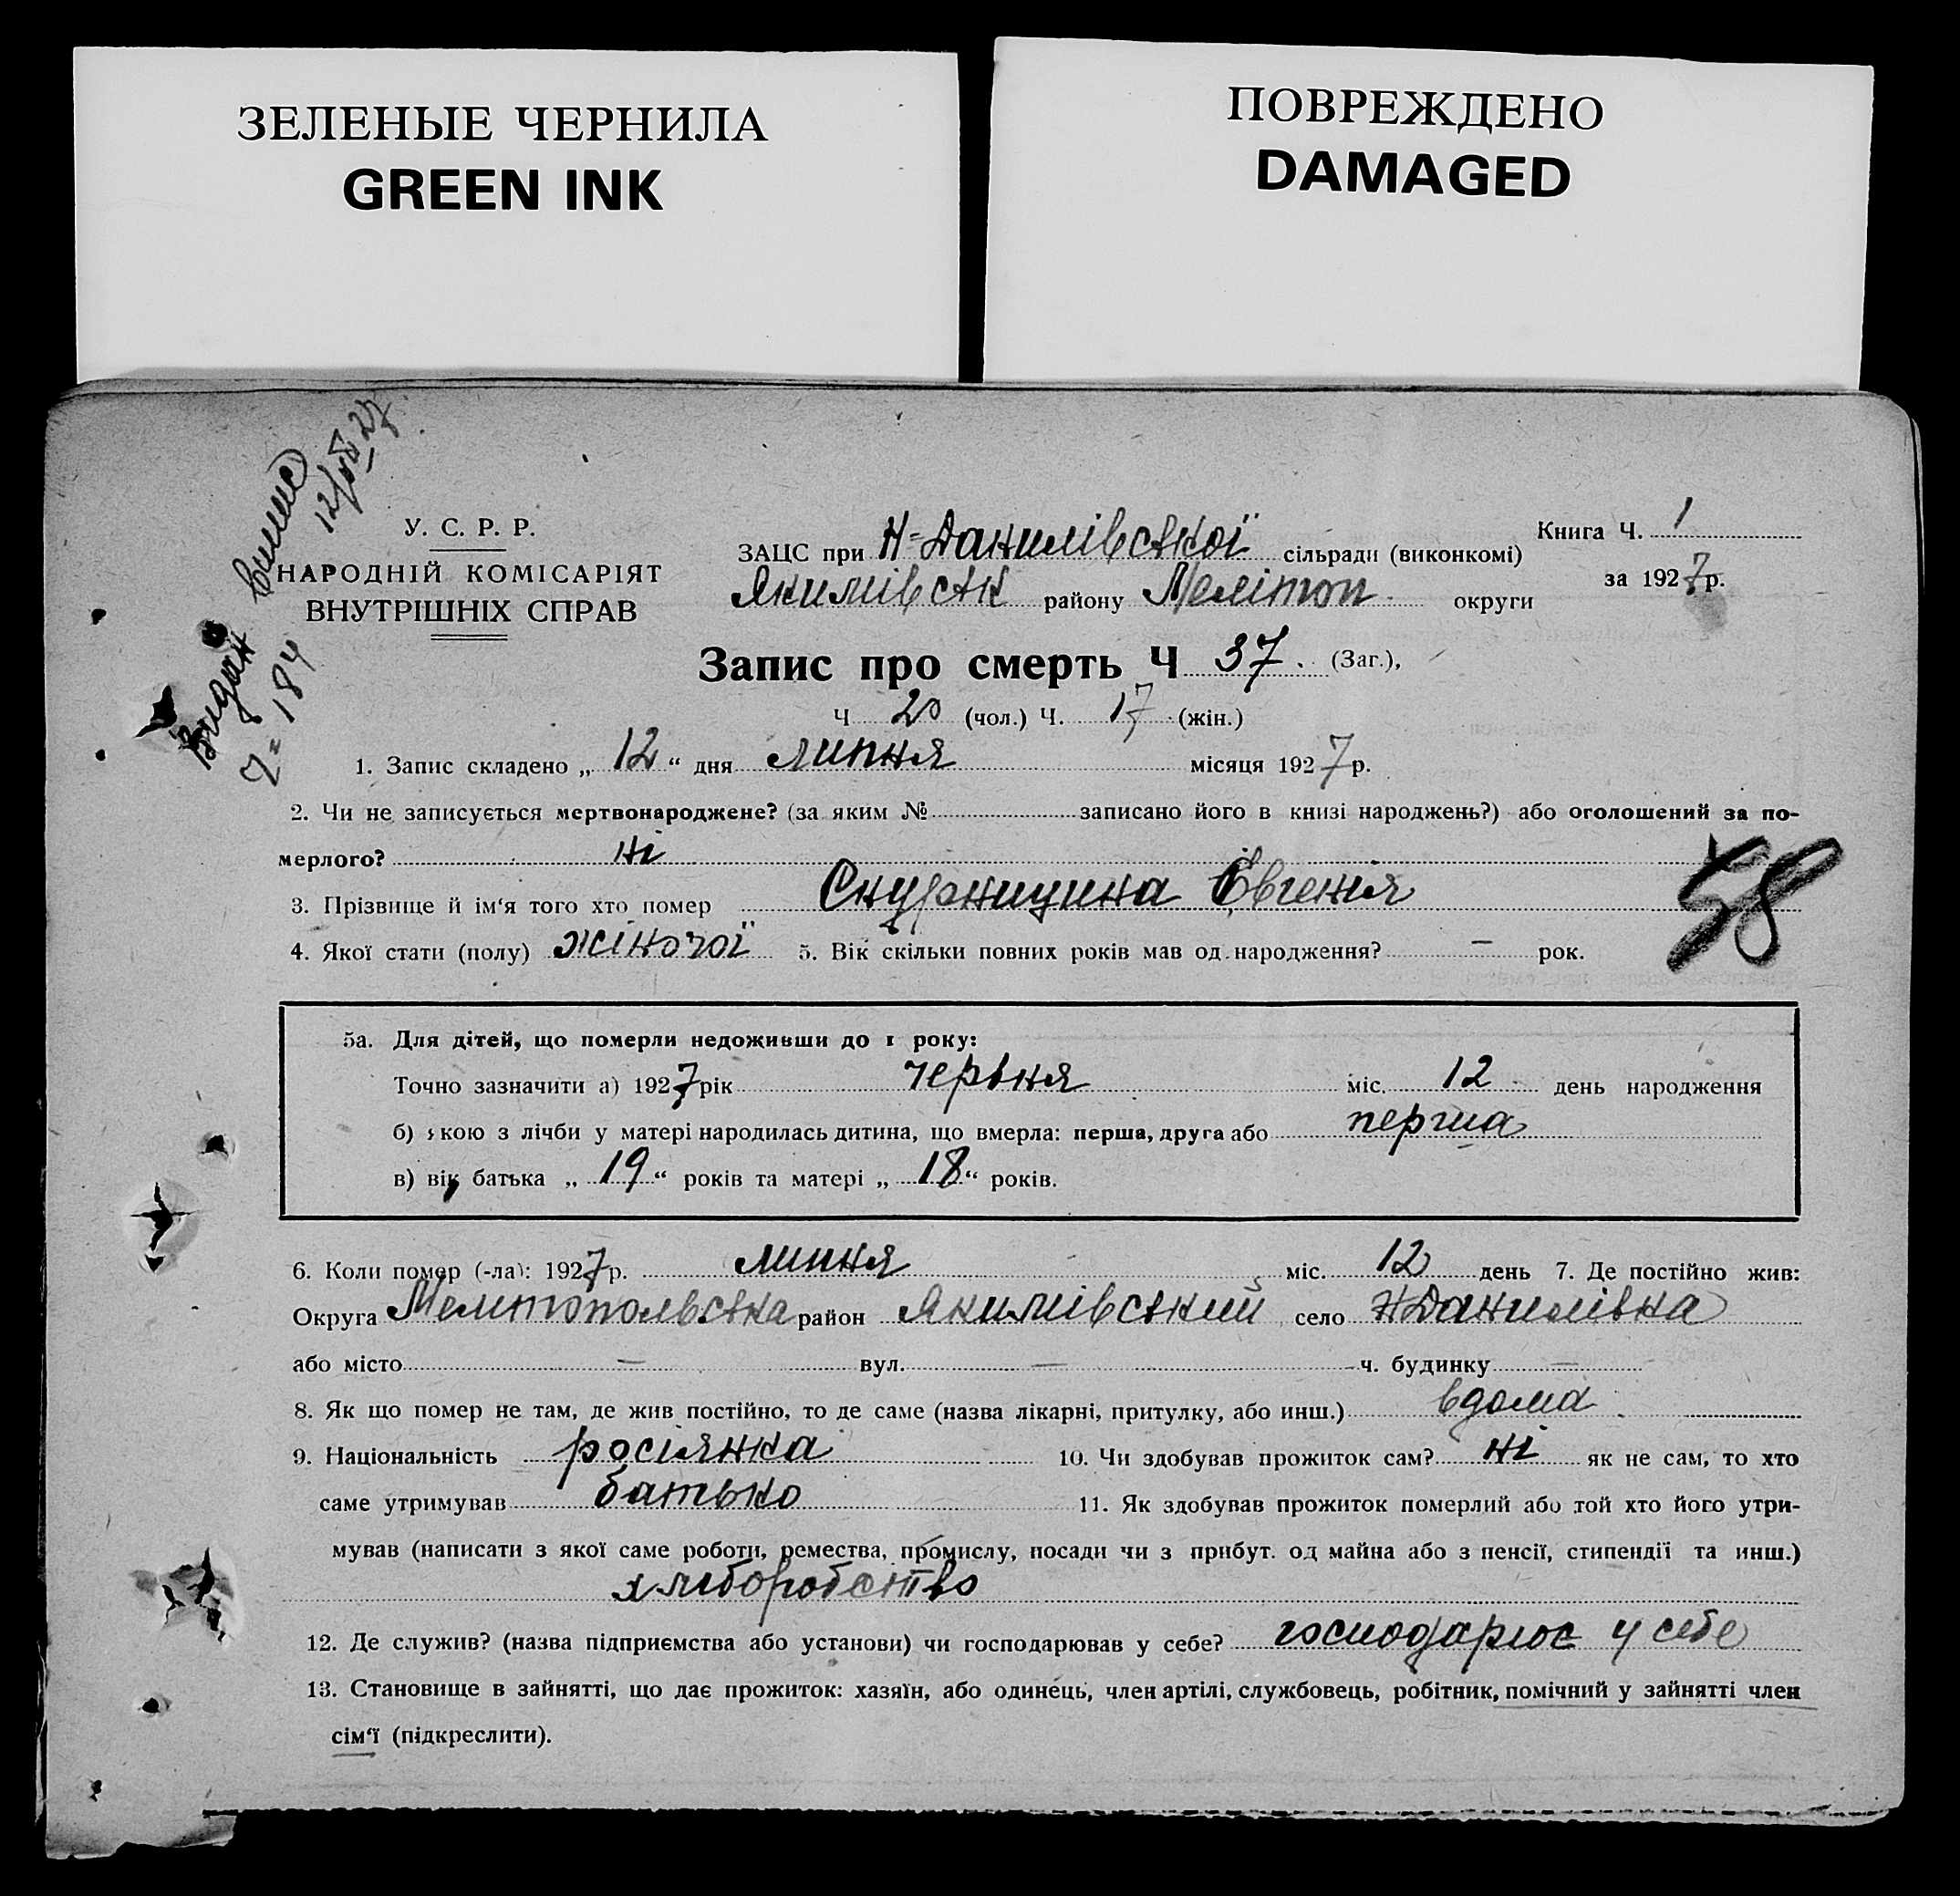 ЗЕЛЕНЫЕ ЧЕРНИЛА
GREEN INK
ПОВРЕЖДЕНО
DAMAGED
Видан випис
№ 184 12/VII 27
У. С. Р. Р.
НАРОДНІЙ КОМІСАРІЯТ
ВНУТРІШНІХ СПРАВ
ЗАЦС при Н-Данилівської сільради (виконкомі)
Якимівськ району Мелітоп. округи
Книга Ч. 1
за 1927 р.
Запис про смерть Ч 37. (Заг.),
Ч 20 (чол.) Ч. 17 (жін.)
1. Запис складено „ 12 “ дня липня місяця 1927 р.
2. Чи не записується мертвонароджене? (за яким № записано його в книзі народжень?) або оголошений за по-
мерлого? ні
3. Прізвище й ім‘я того хто помер Євгенія
58
4. Якої стати (полу) жіночої 5. Вік скільки повних років мав од народження? — рок.
5а. Для дітей, що померли недоживши до 1 року:
Точно зазначити а) 1927 рік червня міс. 12 день народження
б) якою з лічби у матері народилась дитина, що вмерла: перша, друга або перша
в) вік батька „ 19 “ років та матері „ 18 “ років.
6. Коли помер (-ла): 1927 р. липня міс. 12 день 7. Де постійно жив:
Округа Мелитопольська район Якимівський село Н Данилівка
або місто — вул. — ч. будинку —
8. Як що помер не там, де жив постійно, то де саме (назва лікарні, притулку, або инш.) вдома
9. Національність росіянка 10. Чи здобував прожиток сам? ні як не сам, то хто
саме утримував батько 11. Як здобував прожиток померлий або той хто його утри-
мував (написати з якої саме роботи, ремества, промислу, посади чи з прибут. од майна або з пенсії, стипендії та инш.)
хліборобство
12. Де служив? (назва підприємства або установи) чи господарював у себе? господарює у себе
13. Становище в зайнятті, що дає прожиток: хазяїн, або одинець, член артілі, службовець, робітник, помічний у зайнятті член
сім‘ї (підкреслити).